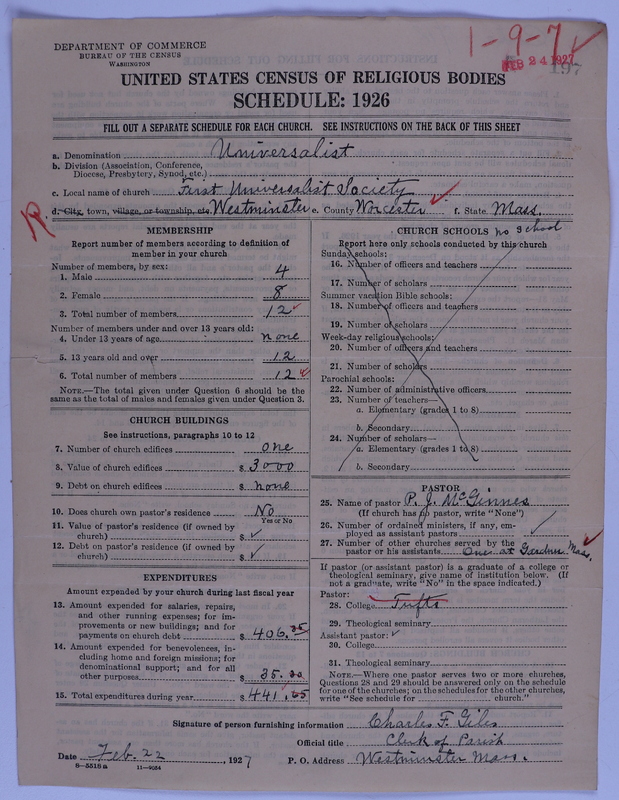 1-9-7
DEPARTMENT OF COMMERCE
BUREAU OF THE CENSUS
WASHINGTON
FEB 24 1927
197
UNITED STATES CENSUS OF RELIGIOUS BODIES
SCHEDULE: 1926
FILL OUT A SEPARATE SCHEDULE FOR EACH CHURCH. SEE INSTRUCTIONS ON THE BACK OF THIS SHEET
a. Denomination Universalist
b. Division (Association, Conference,
Diocese, Presbytery, Synod, etc.)
c. Local name of church First Universalist Society
d. City, town, village, or township, etc. Westminster e. County Worcester f. State Mass.
MEMBERSHIP
Report number of members according to definition of
member in your church
Number of members, by sex:
1. Male 4
2. Female 8
3. Total number of members 12
Number of members under and over 13 years old:
4. Under 13 years of age none
5. 13 years old and over 12
6. Total number of members 12
NOTE.—The total given under Question 6 should be
same as the total of males and females given under Question 3.
CHURCH BUILDINGS
See instructions, paragraphs 10 to 12
7. Number of church edifices one
8. Value of church edifices $ 3000
9. Debt on church edifices $ none
10. Does church own pastor's residence No
Yes or No
11. Value of pastor's residence (if owned by
church) $
12. Debt on pastor's residence (if owned by
church) $
EXPENDITURES
Amount expended by your church during last fiscal year
13. Amount expended for salaries, repairs,
and other running expenses; for im-
provements or new buildings; and for
payments on church debt $ 406.
14. Amount expended for benevolences, in-
cluding home and foreign missions; for
denominational support; and for all
other purposes $ 35.
15. Total expenditures during year $ 441.
CHURCH SCHOOLS no school
Report here only schools conducted by this church
Sunday schools:
16. Number of officers and teachers
17. Number of scholars
Summer vacation Bible schools:
18. Number of officers and teachers
19. Number of scholars
Week-day religious schools:
20. Number of officers and teachers
21. Number of scholars
Parochial schools:
22. Number of administrative officers
23. Number of teachers—
a. Elementary (grades 1 to 8)
b. Secondary
24. Number of scholars—
a. Elementary (grades 1 to 8)
b. Secondary
PASTOR
25. Name of pastor P. J. McGinnes
(If church has no pastor, write "None")
26. Number of ordained ministers, if any, em-
ployed as assistant pastors
27. Number of other churches served by the
pastor or his assistants One at Gardner Mass.
If pastor (or assistant pastor) is a graduate of a college or
theological seminary, give name of institution below. (If
not a graduate, write "No" in the space indicated.)
Pastor:
28. College Tufts
29. Theological seminary
Assistant pastor:
30. College
31. Theological seminary
NOTE.—Where one pastor serves two or more churches,
Questions 28 and 29 should be answered only on the schedule
for one of the churches; on the schedules for the other churches,
write "See schedule for church."
Signature of person furnishing information Charles F. Giles
Official title Clerk of Parish
Date Feb. 22, 1927 P. O. Address Westminster Mass.
8-5516 a 11-9034